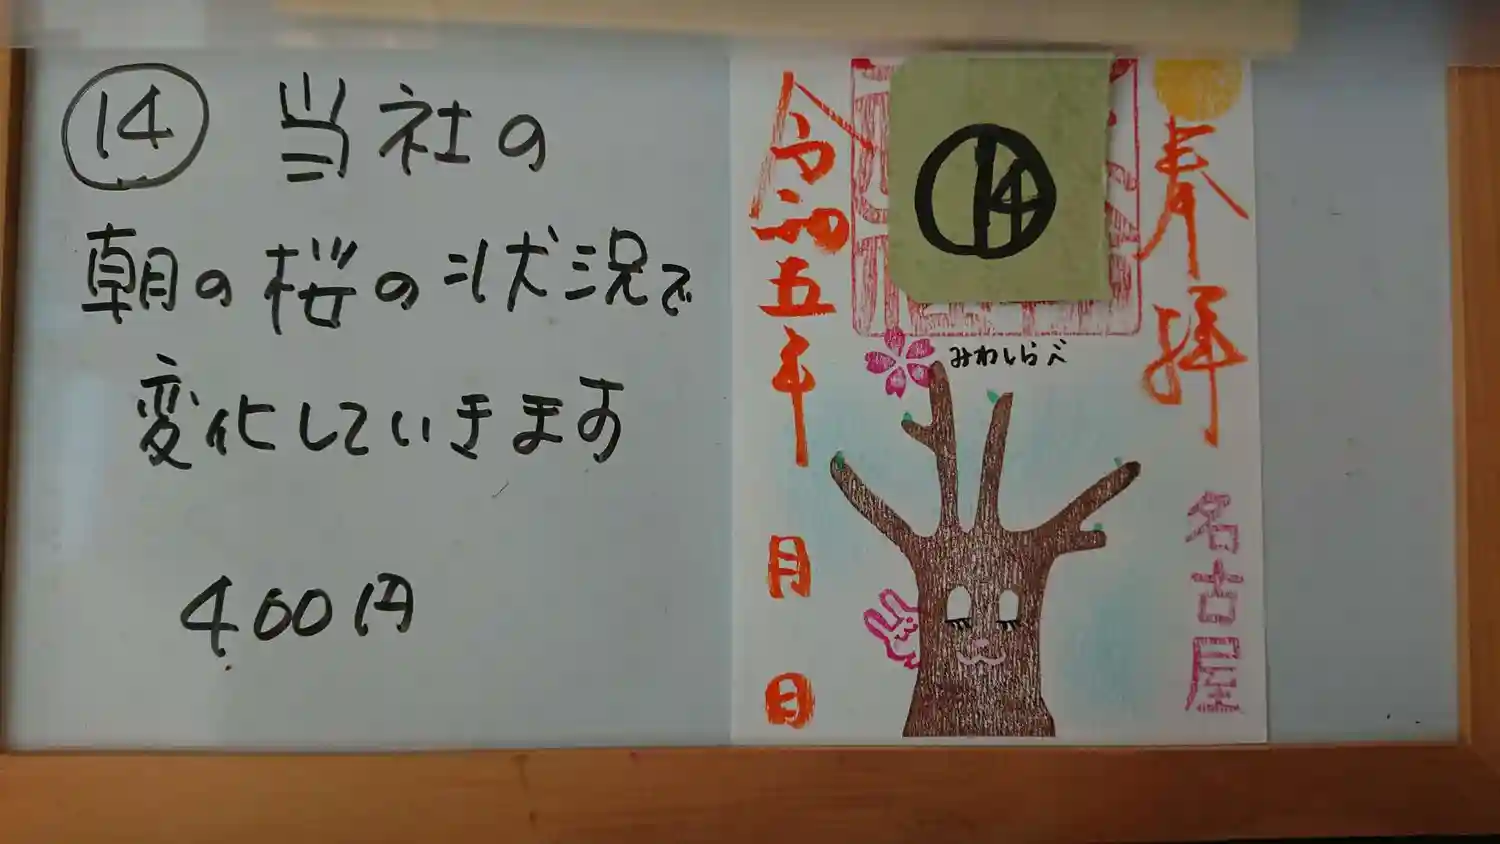 ⑭ 当社の
朝の桜の状況で
変化していきます
400円
奉拝
⑭
みわしらべ
名古屋
令和五年 月 日